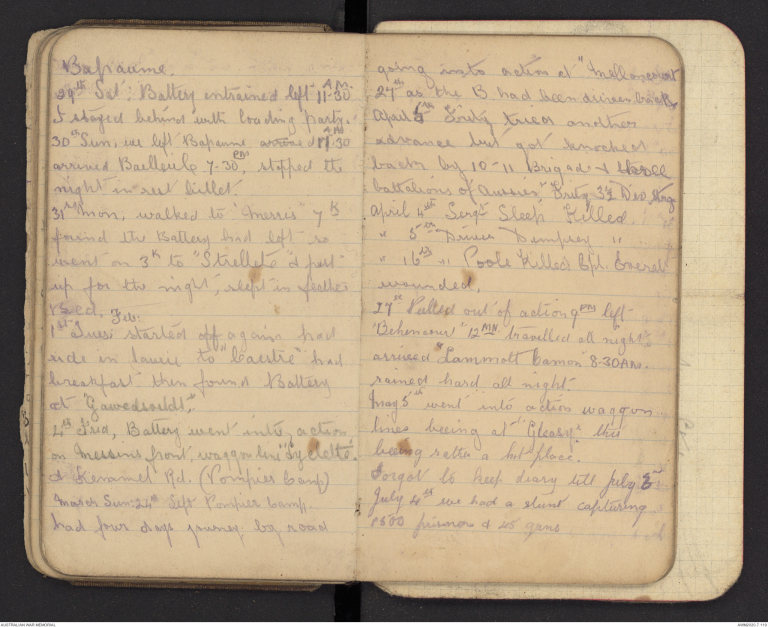 Bapaume.
29th Sat; Battery entrained left 11-30 A.M.
I stayed behind with loading party.
30th Sun, we left Bapaume 11-30 AM
arrived Bailleile 7-30 PM, stopped the
night in rest billet.
31st Mon, walked to "Merris" 7 K
found the Battery had left so
went on 3K to "Strellete" & put
up for the night, slept in feather
Bed, Feb:
1st Tues started off again had
ride in laurie to "Caestre" had
breakfast then found Battery
at
4th Frid, Battery went into action
on Messines front, waggon line
& Kemmel Rd. (Pompier Camp)
March Sun 24th Left Pompier Camp.
had four days journey by road
going into action at "Mellancourt"
27th as the B had been driven back
April 5th Fritz tried another
advance but got knocked
back by 10-11 Brigade &
battalions of Aussies, Fritz 3½ Div
April 4th Sergt Sleep Killed.
" 5th Driver Dempsey "
" 16th " Poole Killed Cpl. Everett
wounded.
27th Pulled out of action 9 PM left
"Behencourt" 12 MN travelled all night
arrived "Lammott Camon" 8-30 AM.
rained hard all night
May 5th went into action waggon
lines beeing at "Gleasy" this
beeing ratha a hot place.
Forgot to keep diary till July 3rd
July 4th we had a stunt capturing
1500 prisnors & guns
AUSTRALIAN WAR MEMORIAL